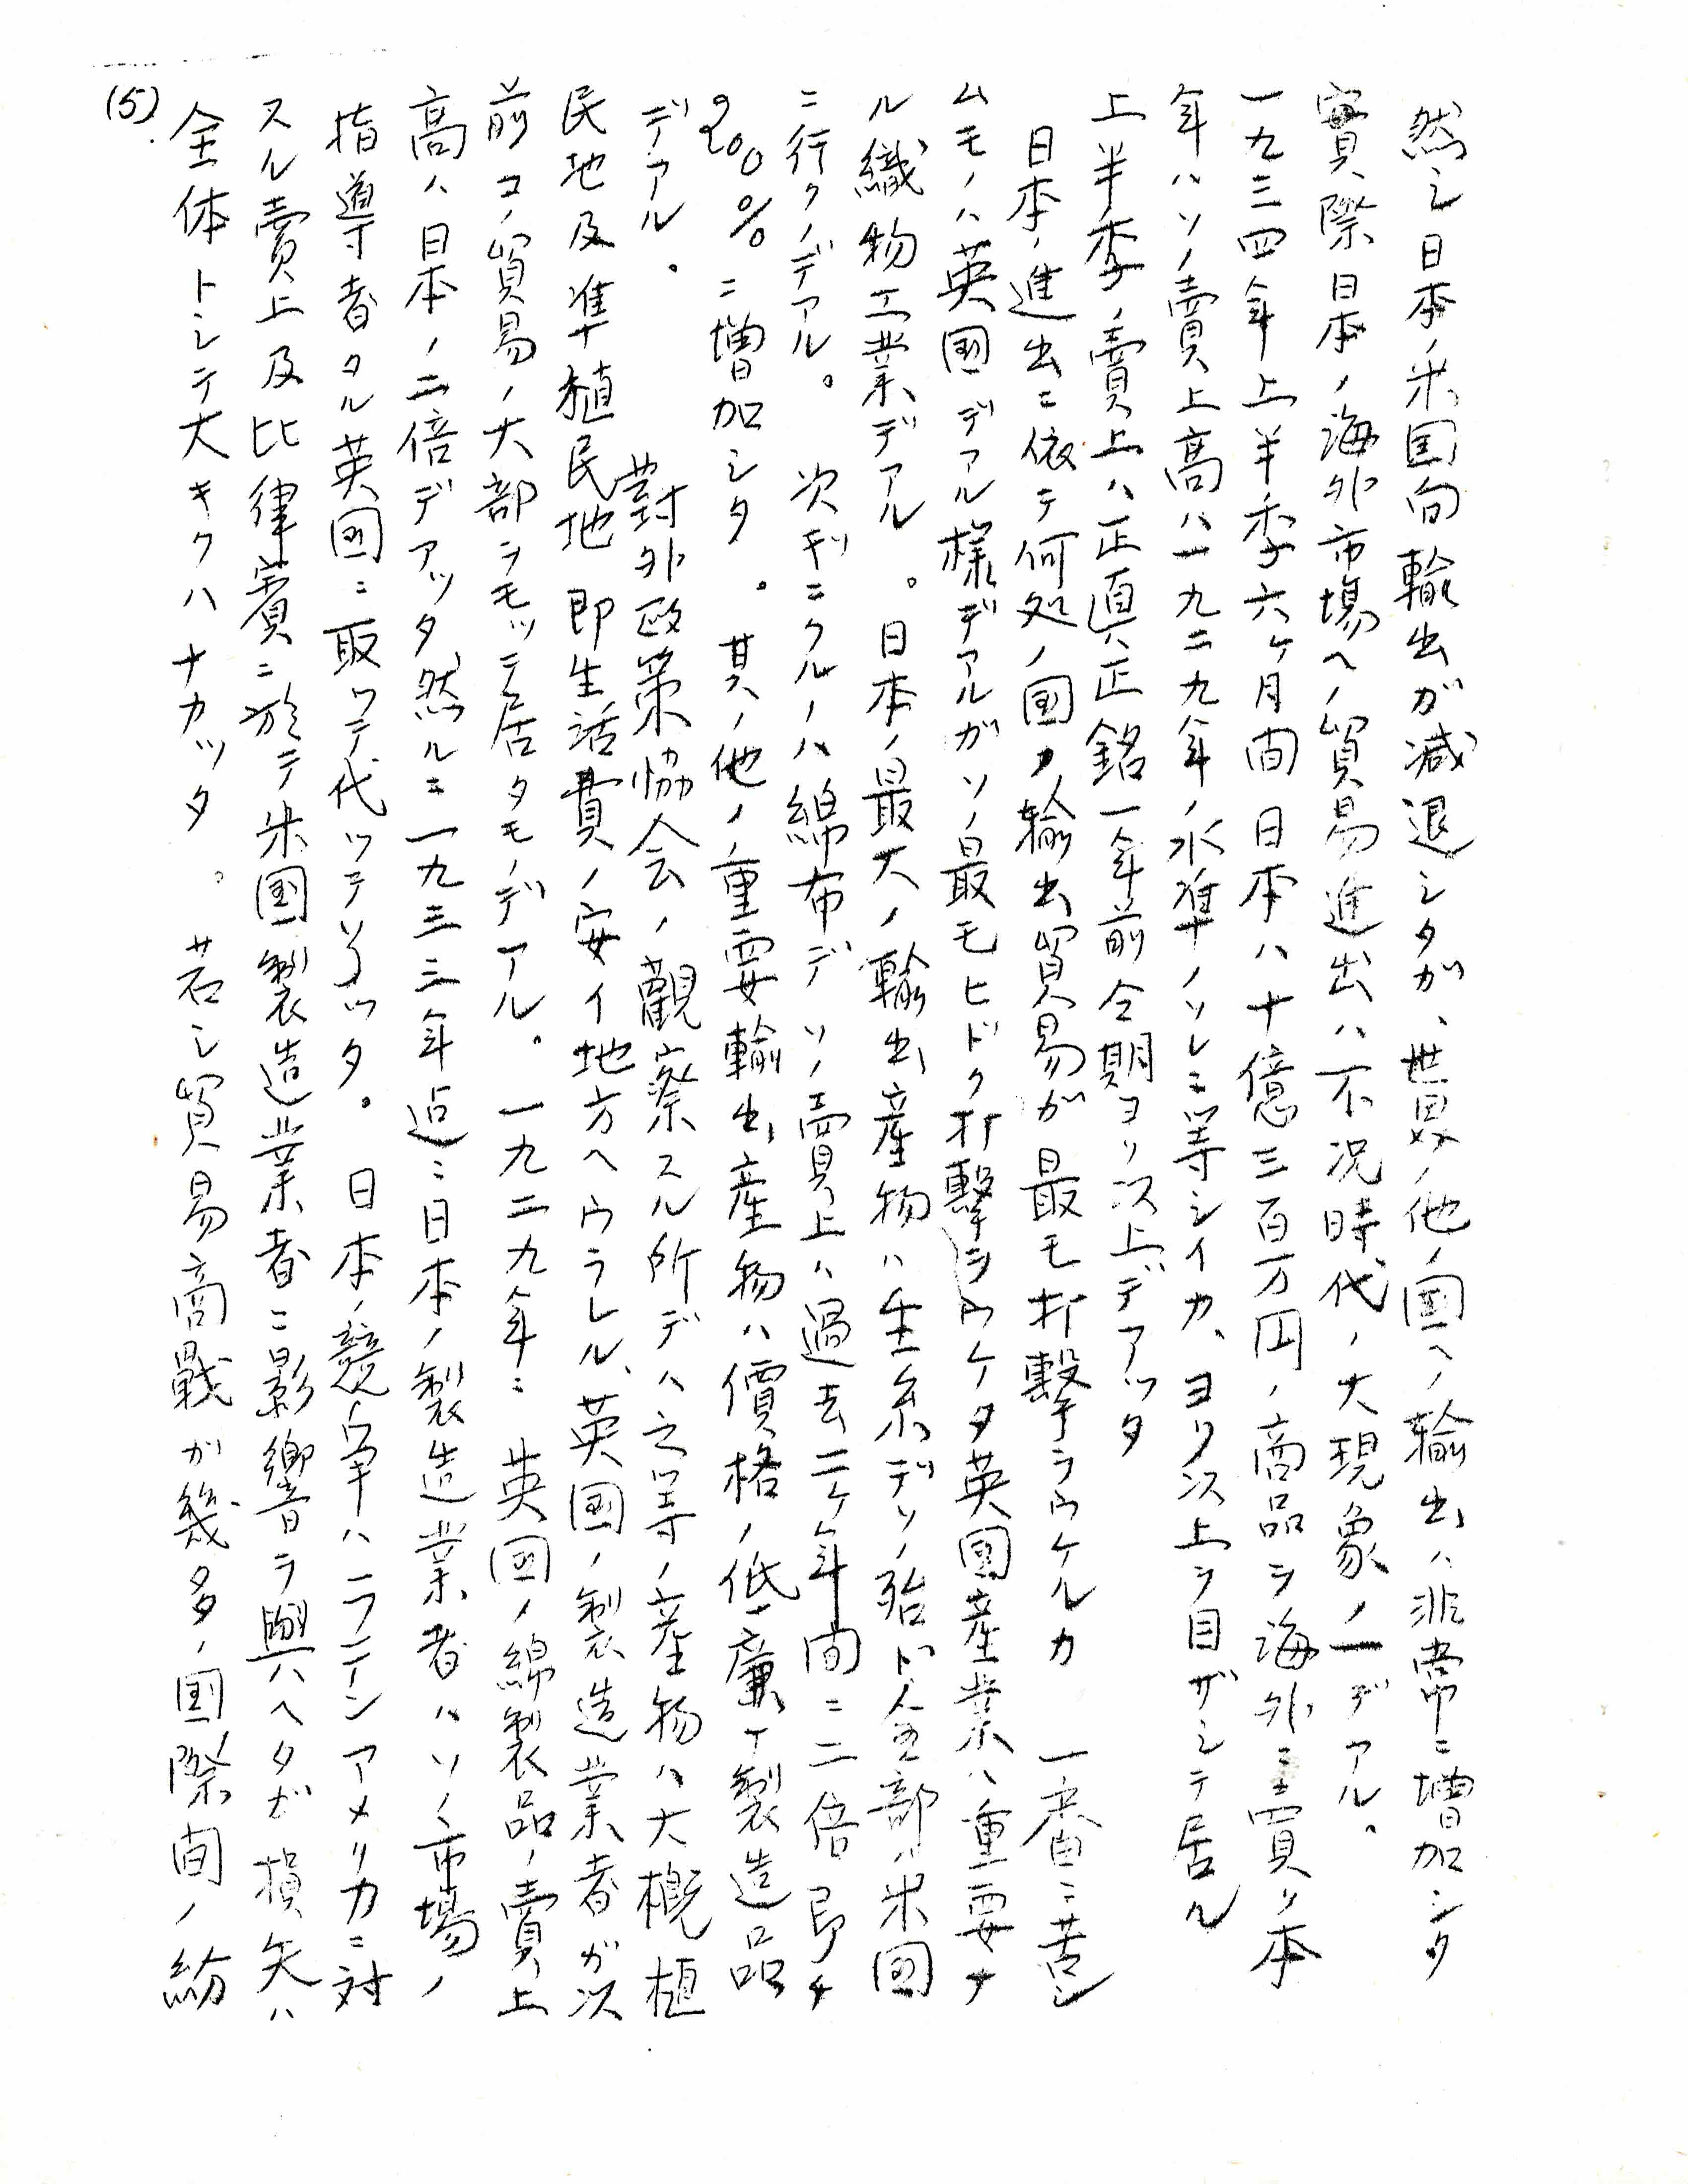 然シ日本ノ米国向輸出ガ減退シタガ、世界ノ他ノ国ヘノ輸出ハ非常ニ増加シタ
實際日本ノ海外市場ヘノ貿易進出ハ不况時代ノ大現象ノ一デアル。
一九三四年上半季六ヶ月間日本ハ十億三百万円ノ商品ヲ海外ニ賣リ本
年ハソノ賣上高ハ一九二九年ノ水準ノソレニ等シイカ、ヨリ以上ヲ目ザシテ居ル
上半季ノ賣上ハ正真正銘一年前仝期ヨリ以上デアッタ
日本ノ進出ニ依テ何処ノ国ノ輸出貿易ガ最モ打撃ヲウケルカ 一番ニ苦シ
ムモノハ英国デアル様デアルガソノ最モヒドク打撃ヲウケタ英国産業ハ重要ナ
ル織物工業デアル。日本ノ最大ノ輸出産物ハ生糸デソノ殆ド全部ハ米国
ニ行クノデアル。 次ギニクルノハ綿布デソノ賣上ハ過去二ヶ年間ニ二倍即チ
200%ニ増加シタ。其ノ他ノ重要輸出産物ハ價格ノ低廉ナ製造品
デアル。 對外政策協会ノ觀察スル所デハ之等ノ産物ハ大概植
民地及準植民地即生活費ノ安イ地方ヘウラレル、英国ノ製造業者ガ以
前コノ貿易ノ大部ヲモッテ居タモノデアル。一九二九年ニ英国ノ綿製品ノ賣上
高ハ日本ノ二倍デアッタ然ルニ一九三三年迠ニ日本ノ製造業者ハソノ市場ノ
指導者タル英国ニ取ッテ代ッテ了ッタ。日本ノ競争ハラテインアメリカニ対
スル賣上及比律賓ニ於テ米国製造業者ニ影響ヲ與ヘタガ損失ハ
全体トシテ大キクハナカッタ。若シ貿易商戰ガ幾多ノ国際間ノ紛
(5).